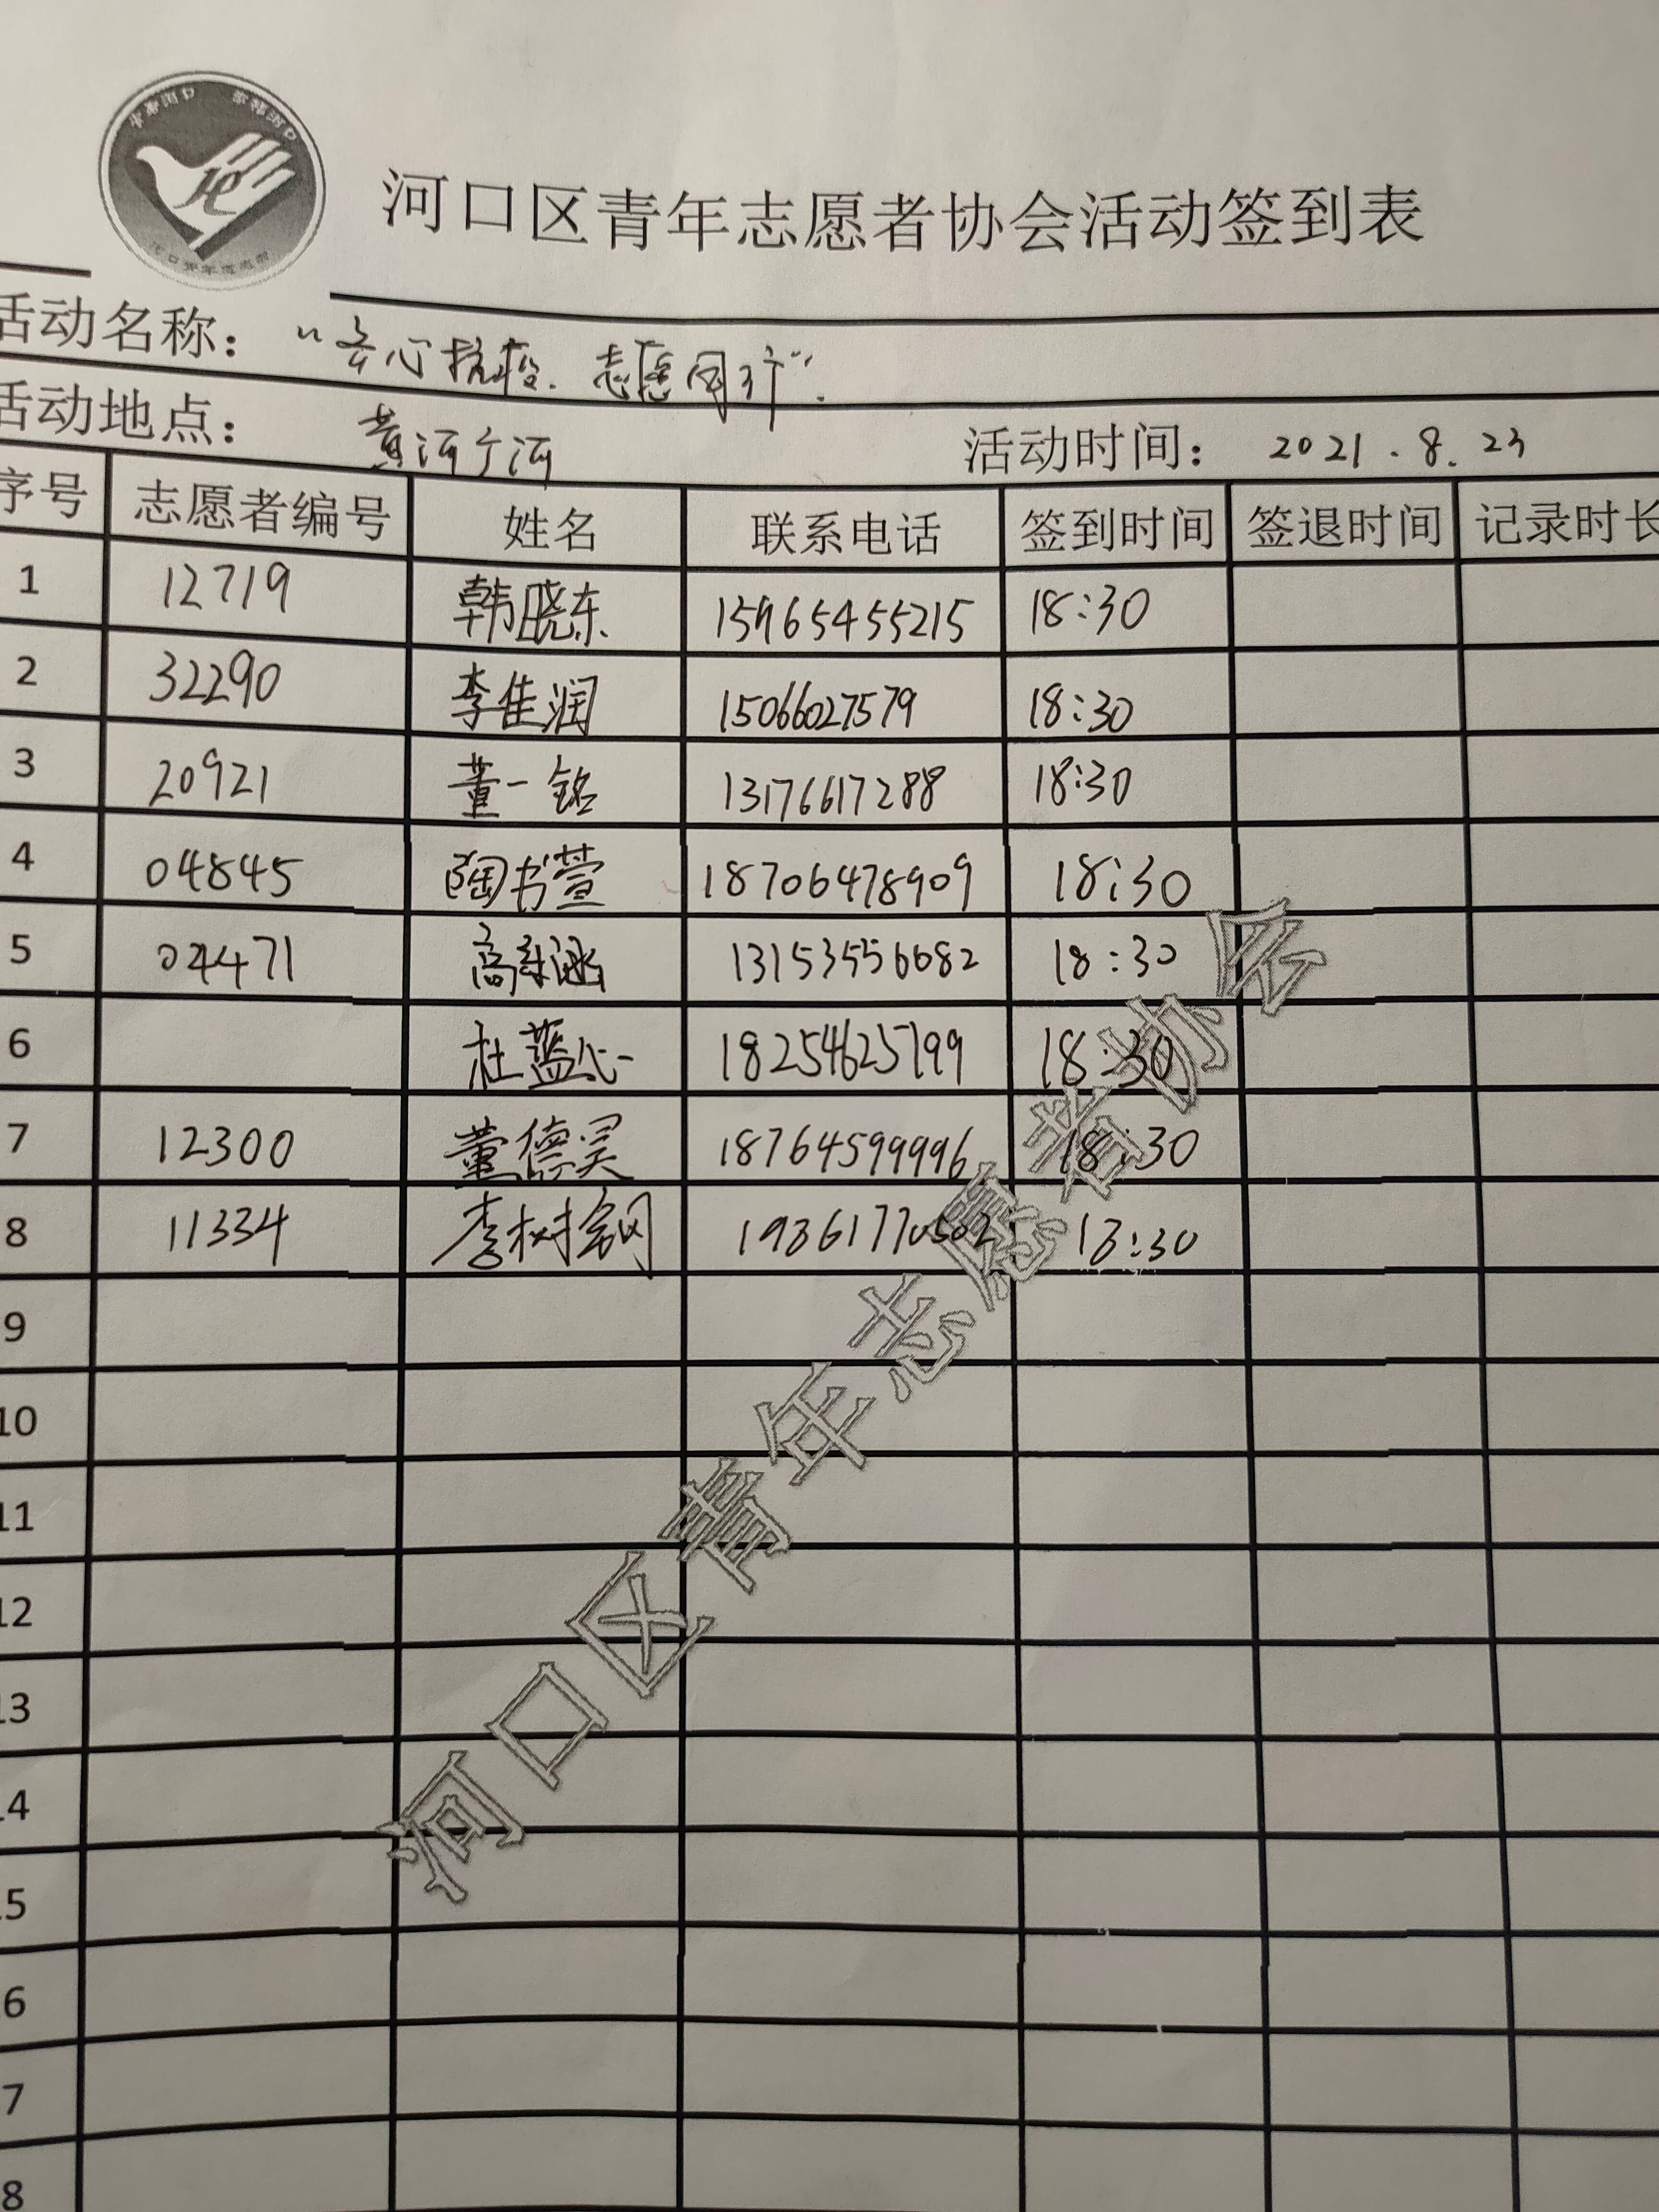 河口区青年志愿者协会活动签到表
活动名称： “齐心抗疫.志愿同行”.
活动地点： 黄河广河 活动时间： 2021.8.23
序号 志愿者编号 姓名 联系电话 签到时间 签退时间 记录时长
1 12719 韩晓东 15965455215 18:30
2 32290 李佳润 15066027579 18:30
3 20921 董一铭 13176617288 18:30
4 04845 陶书萱 18706478909 18:30
5 04471 高 涵 13153556682 18:30
6 杜蓝心 18254625799 18:30
7 12300 董德昊 18764599996 18:30
8 11334 李树 19861770502 18:30
9
10
11
12
13
14
15
16
17
18
河口区青年志愿者协会